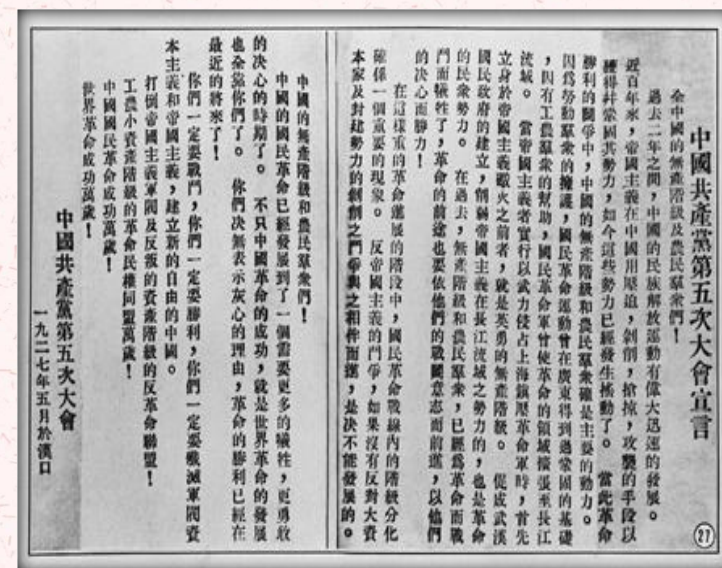 中國共產黨第五次大會宣言
全中國的無產階級及農民羣衆們！
過去二年之間，中國的民族解放運動有偉大迅速的發展。
近百年來，帝國主義在中國用壓迫，剝削，搶掠，攻襲的手段以
獲得幷鞏固其勢力，如今這些勢力已經發生搖動了。　當此革命
勝利的鬭爭中，中國的無產階級和農民羣衆確是主要的動力。
因爲勞動羣衆的擁護，國民革命運動曾在廣東得到過鞏固的基礎
，因有工農羣衆的幫助，國民革命軍曾使革命的領域擴張至長江
流域。　當帝國主義者實行以武力侵占上海鎮壓革命軍時，首先
立身於帝國主義礮火之前者，就是英勇的無產階級。　促成武漢
國民政府的建立，削弱帝國主義在長江流域之勢力的，也是革命
的民衆勢力。　在過去，無產階級和農民羣衆，已經爲革命而戰
鬥而犧牲了，革命的前途也要依他們的戰鬭意志而前進，以他們
的決心而勝力！
在這樣重的革命進展的階段中，國民革命戰線內的階級分化
確係一個重要的現象。　反帝國主義的鬥爭，如果沒有反對大資
本家及封建勢力的剝削之鬥爭與之相伴而進，是決不能發展的。
中國的無產階級和農民羣衆們！
中國的國民革命已經發展到了一個需要更多的犧牲，更勇敢
的決心的時期了。　不只中國革命的成功，就是世界革命的發展
也全靠你們了。　你們決無表示灰心的理由，革命的勝利已經在
最近的將來了！
你們一定要戰鬥，你們一定要勝利，你們一定要殲滅軍閥資
本主義和帝國主義，建立新的自由的中國。
打倒帝國主義軍閥及反叛的資產階級的反革命聯盟！
工農小資產階級的革命民權同盟萬歲！
中國國民革命成功萬歲！
世界革命成功萬歲！
中國共產黨第五次大會
一九二七年五月於漢口
27